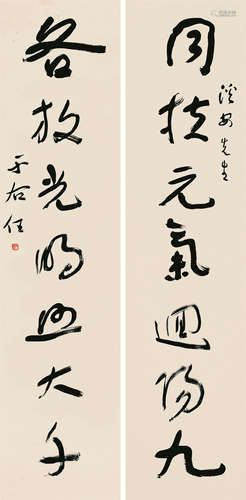 同扶元氣迴陽九
先生
各放光明照大千
于右任